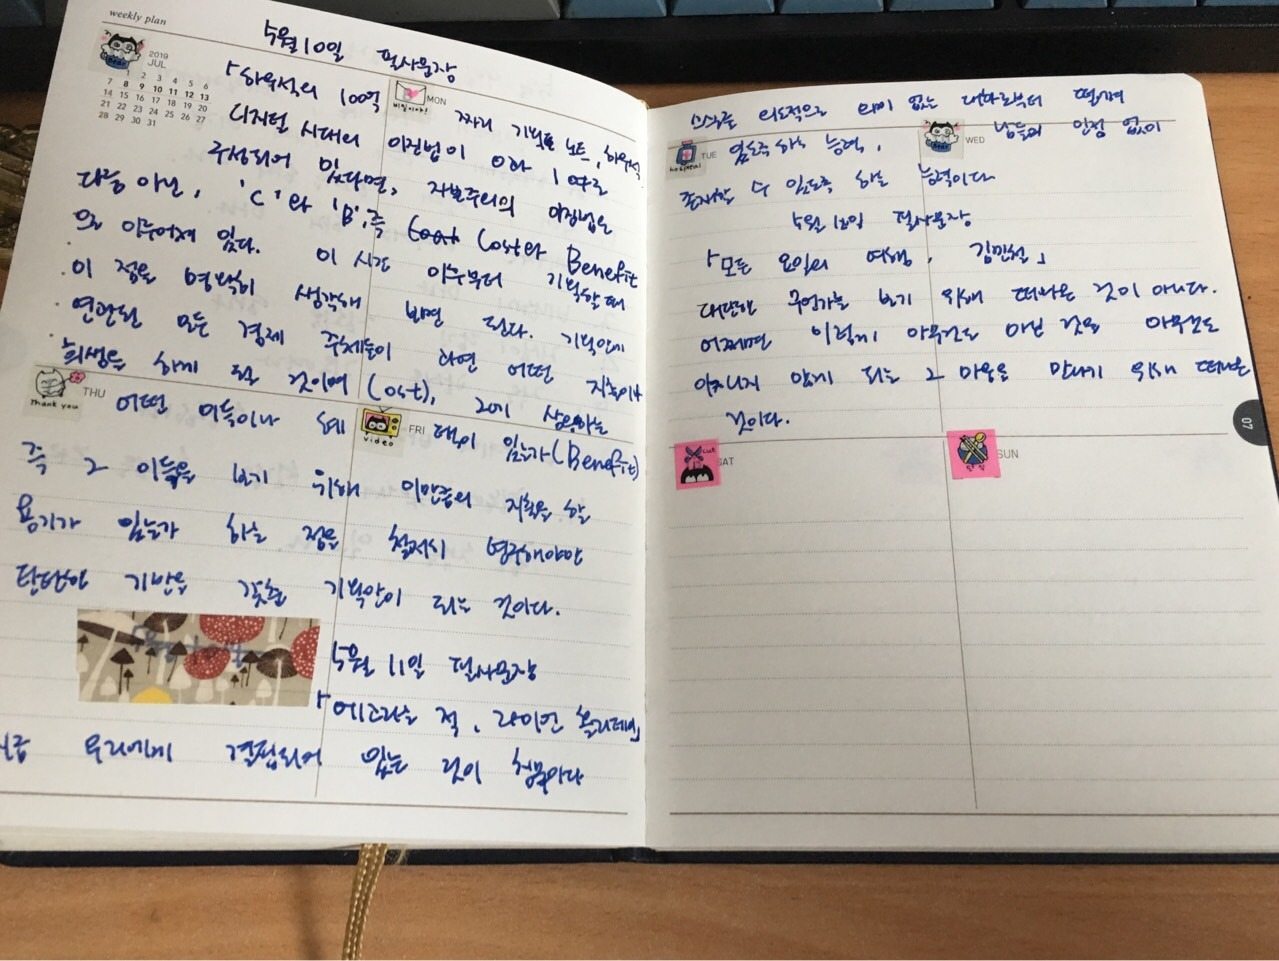 weekly plan
5월 10일 필사문장
2019
JUL
1 2 3 4 5 6
7 8 9 10 11 12 13
14 15 16 17 18 19 20
21 22 23 24 25 26 27
28 29 30 31
MON
「하우석의 100억 짜리 기획력 노트, 하우석
디지털 시대의 이진법이 0과 1으로
구성되어 있다면, 자본주의의 이진법은
다름 아닌, 'C'와 'B', 즉 Cost와 Benefit
으로 이루어져 있다. 이 시간 이후부터 기획할 때
이 점을 명확히 생각해 보면 된다. 기획안에
연관된 모든 경제 주체들이 과연 어떤 지출이나
희생을 하게 될 것이며 (Cost), 그에 상응하는
Thank you
THU
video
FRI
어떤 이득이나 혜택이 있는가(Benefit)
즉 그 이득을 얻기 위해 이만큼의 지출을 할
용기가 있는가 하는 점을 철저히 연구해야만
탄탄한 기반을 갖춘 기획안이 되는 것이다.
5월 11일 필사문장
「에고라는 적, 라이언 홀리데이」
우리에게 결핍되어 있는 것이 침묵이다
스스로를 의도적으로 의미 없는 대화로부터 떨어져
TUE
WED
있도록 하는 능력, 남들의 인정 없이
존재할 수 있도록 하는 능력이다
5월 12일 필사문장
「모든 요일의 여행, 김민철」
대단한 무언가를 보기 위해 떠나온 것이 아니다.
어쩌면 이렇게 아무것도 아닌 것을 아무것도
아니지 않게 되는 그 마음을 만나기 위해 떠나온
것이다.
07
cut
SAT
SUN